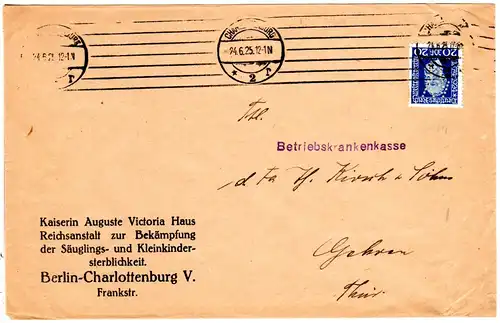 CHARLOTTENBURG
24.6.25.12-1N
* 2 r
20 Deutsches Reich 20
Betriebskrankenkasse
d Fa Th. Kirsch & Söhne
Gehren
Thür
Kaiserin Auguste Victoria Haus
Reichsanstalt zur Bekämpfung
der Säuglings- und Kleinkinder-
sterblichkeit.
Berlin-Charlottenburg V.
Frankstr.